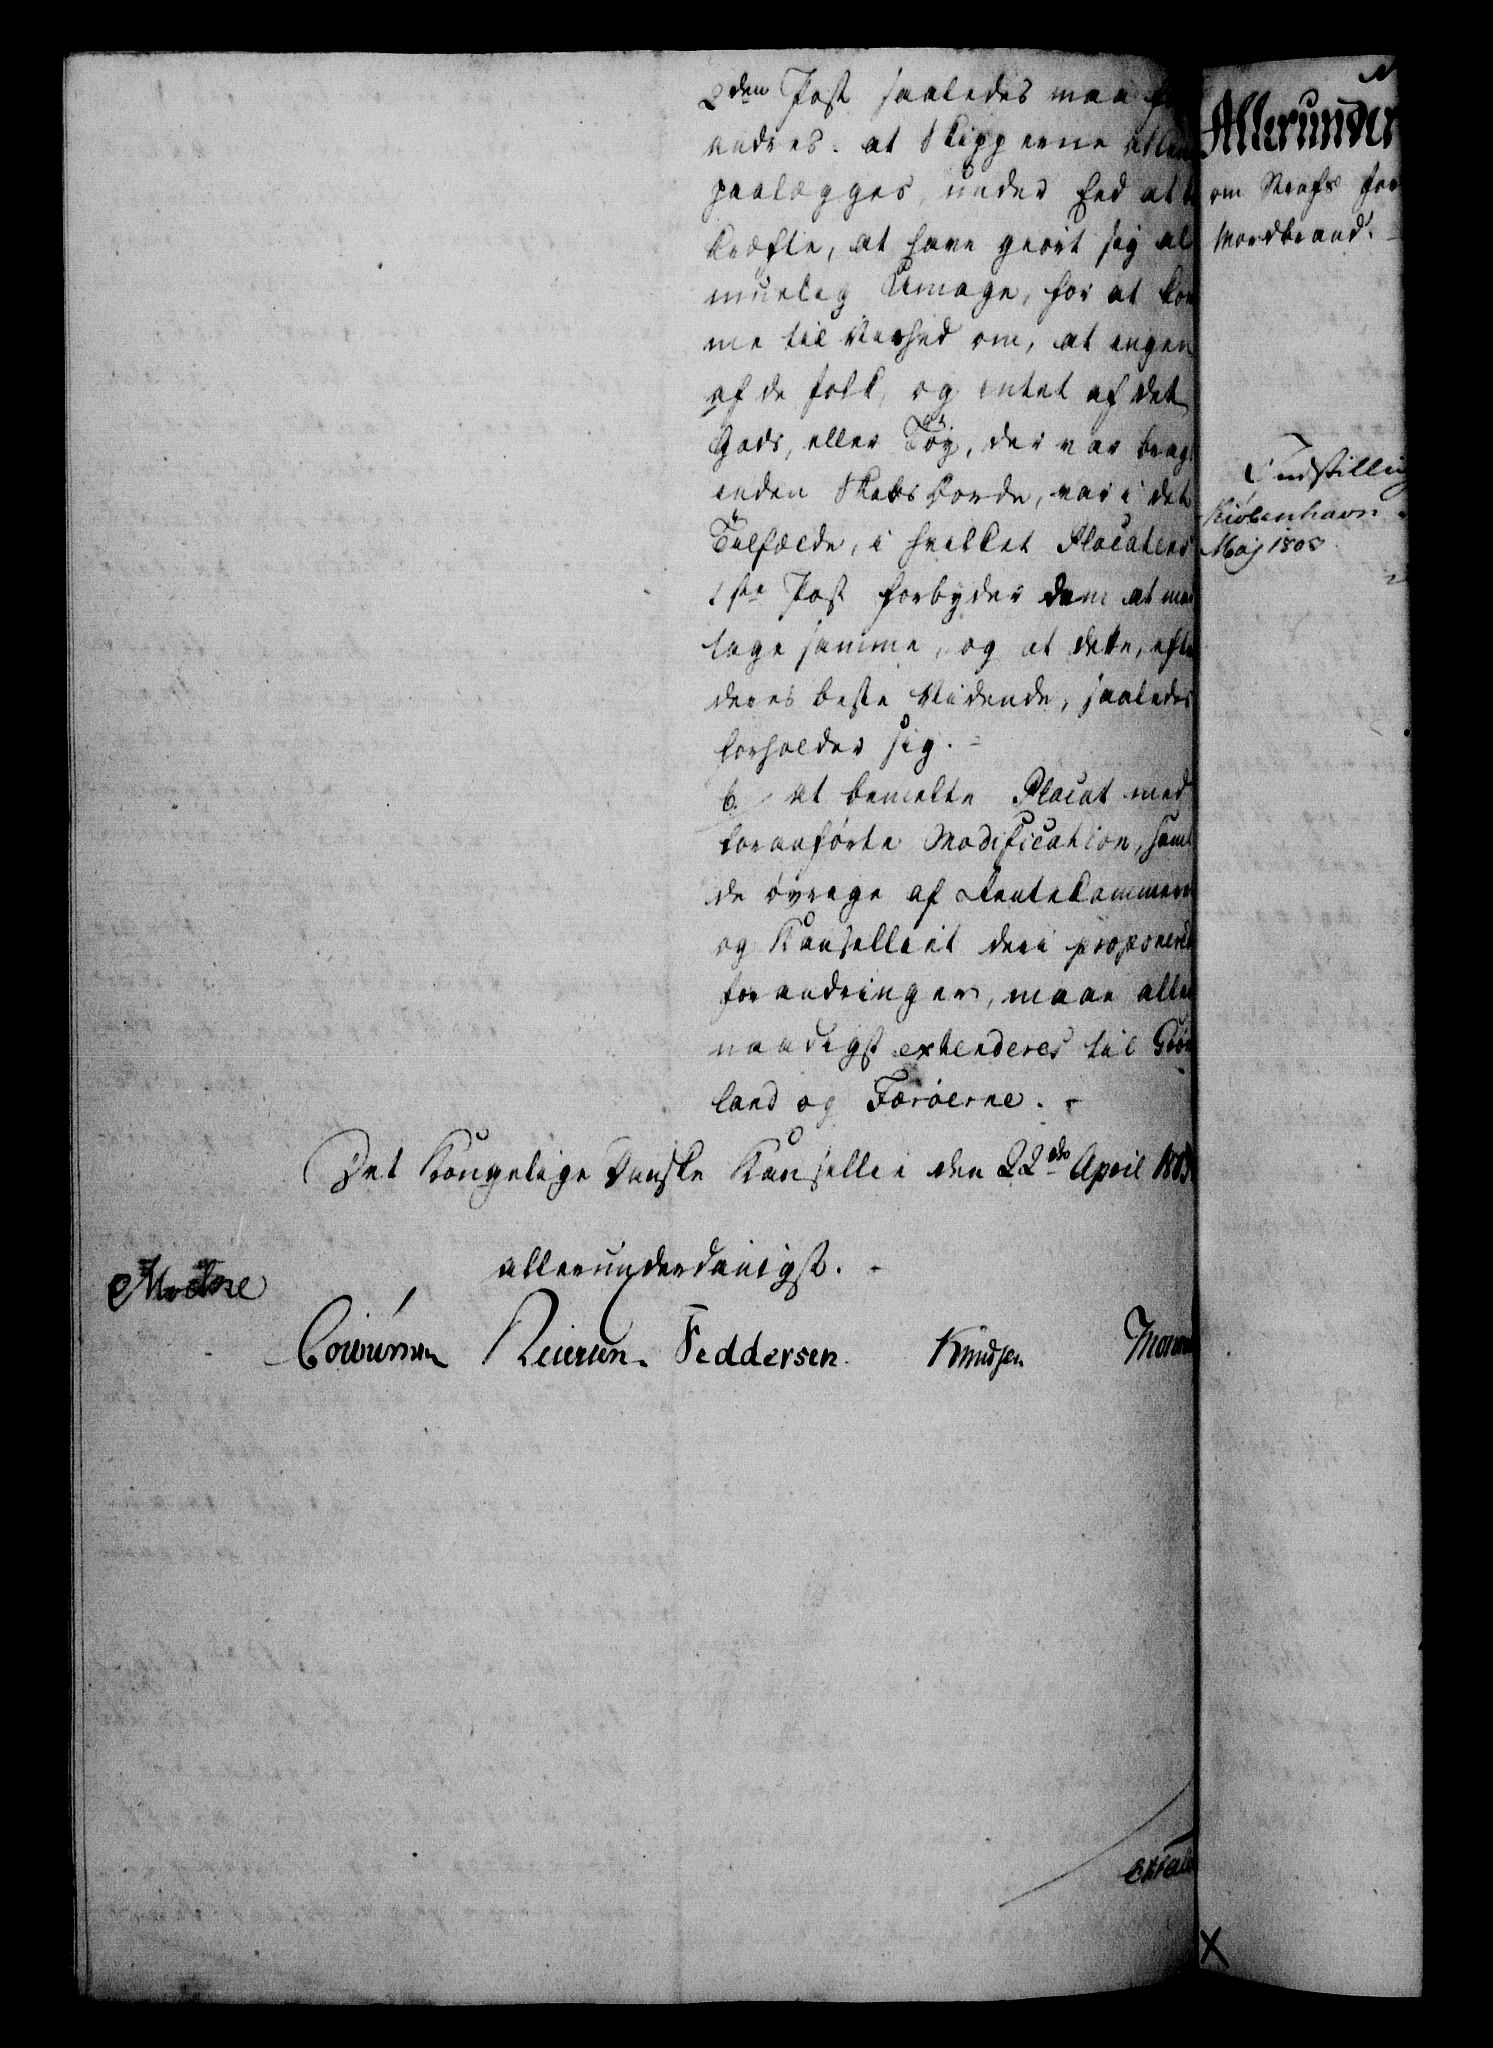 2den Post saaledes maa for
andres: at Skipperne allene
paalægges, under Eed at be
kræfte, at have giort sig al
muelig Umage, for at kom
me til Vished om, at ingen
af de Folk, og intet af det
Gods, eller Töy, der var bragt
inden Skibsborde, var i det
Tilfælde, i hvilket Placatens
1ste Post forbyder dem at mod
tage samme, og at dette, efter
deres beste Vidende, saaledes
forholder sig. -
b. at bemelte Placat med
foranförte Modification, samt
de øvrige af Rentekammeret
og Kanselliet deri proponerede
forandringer, maae aller
naadigst extenderes til Grön
land og Færöerne. -
Det Kongelige Danske Kansellie den 22de April 1803
allerunderdanigst. -
Moltke
Reiersen. Feddersen. Knudsen
Allerunder
om Straf for
Mordbrand.
Indstilling
Kiöbenhavn
Maj 1803
X